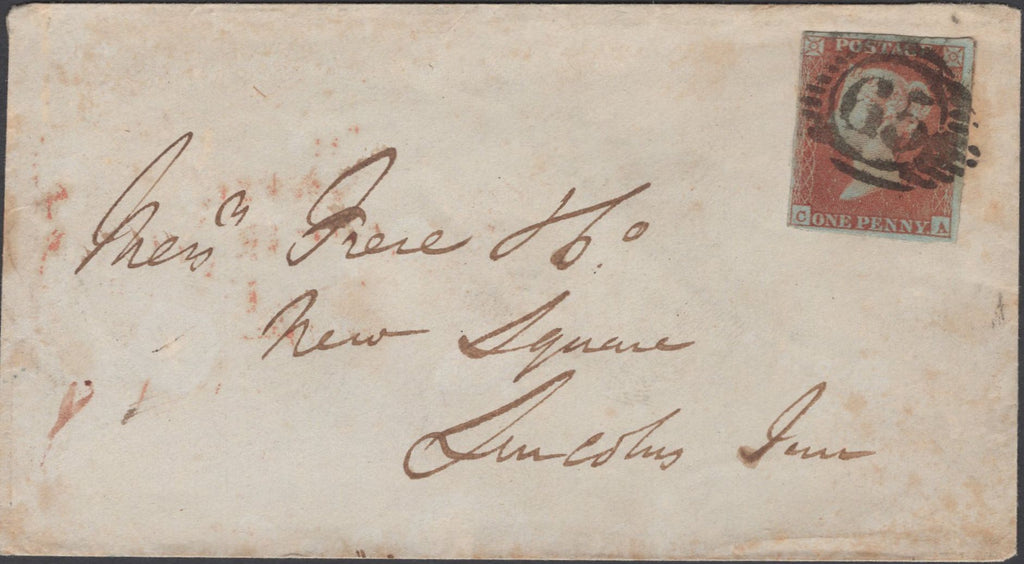 POSTAGE
C ONE PENNY. A
Messrs Frere & Co
New Square
Lincolns Inn